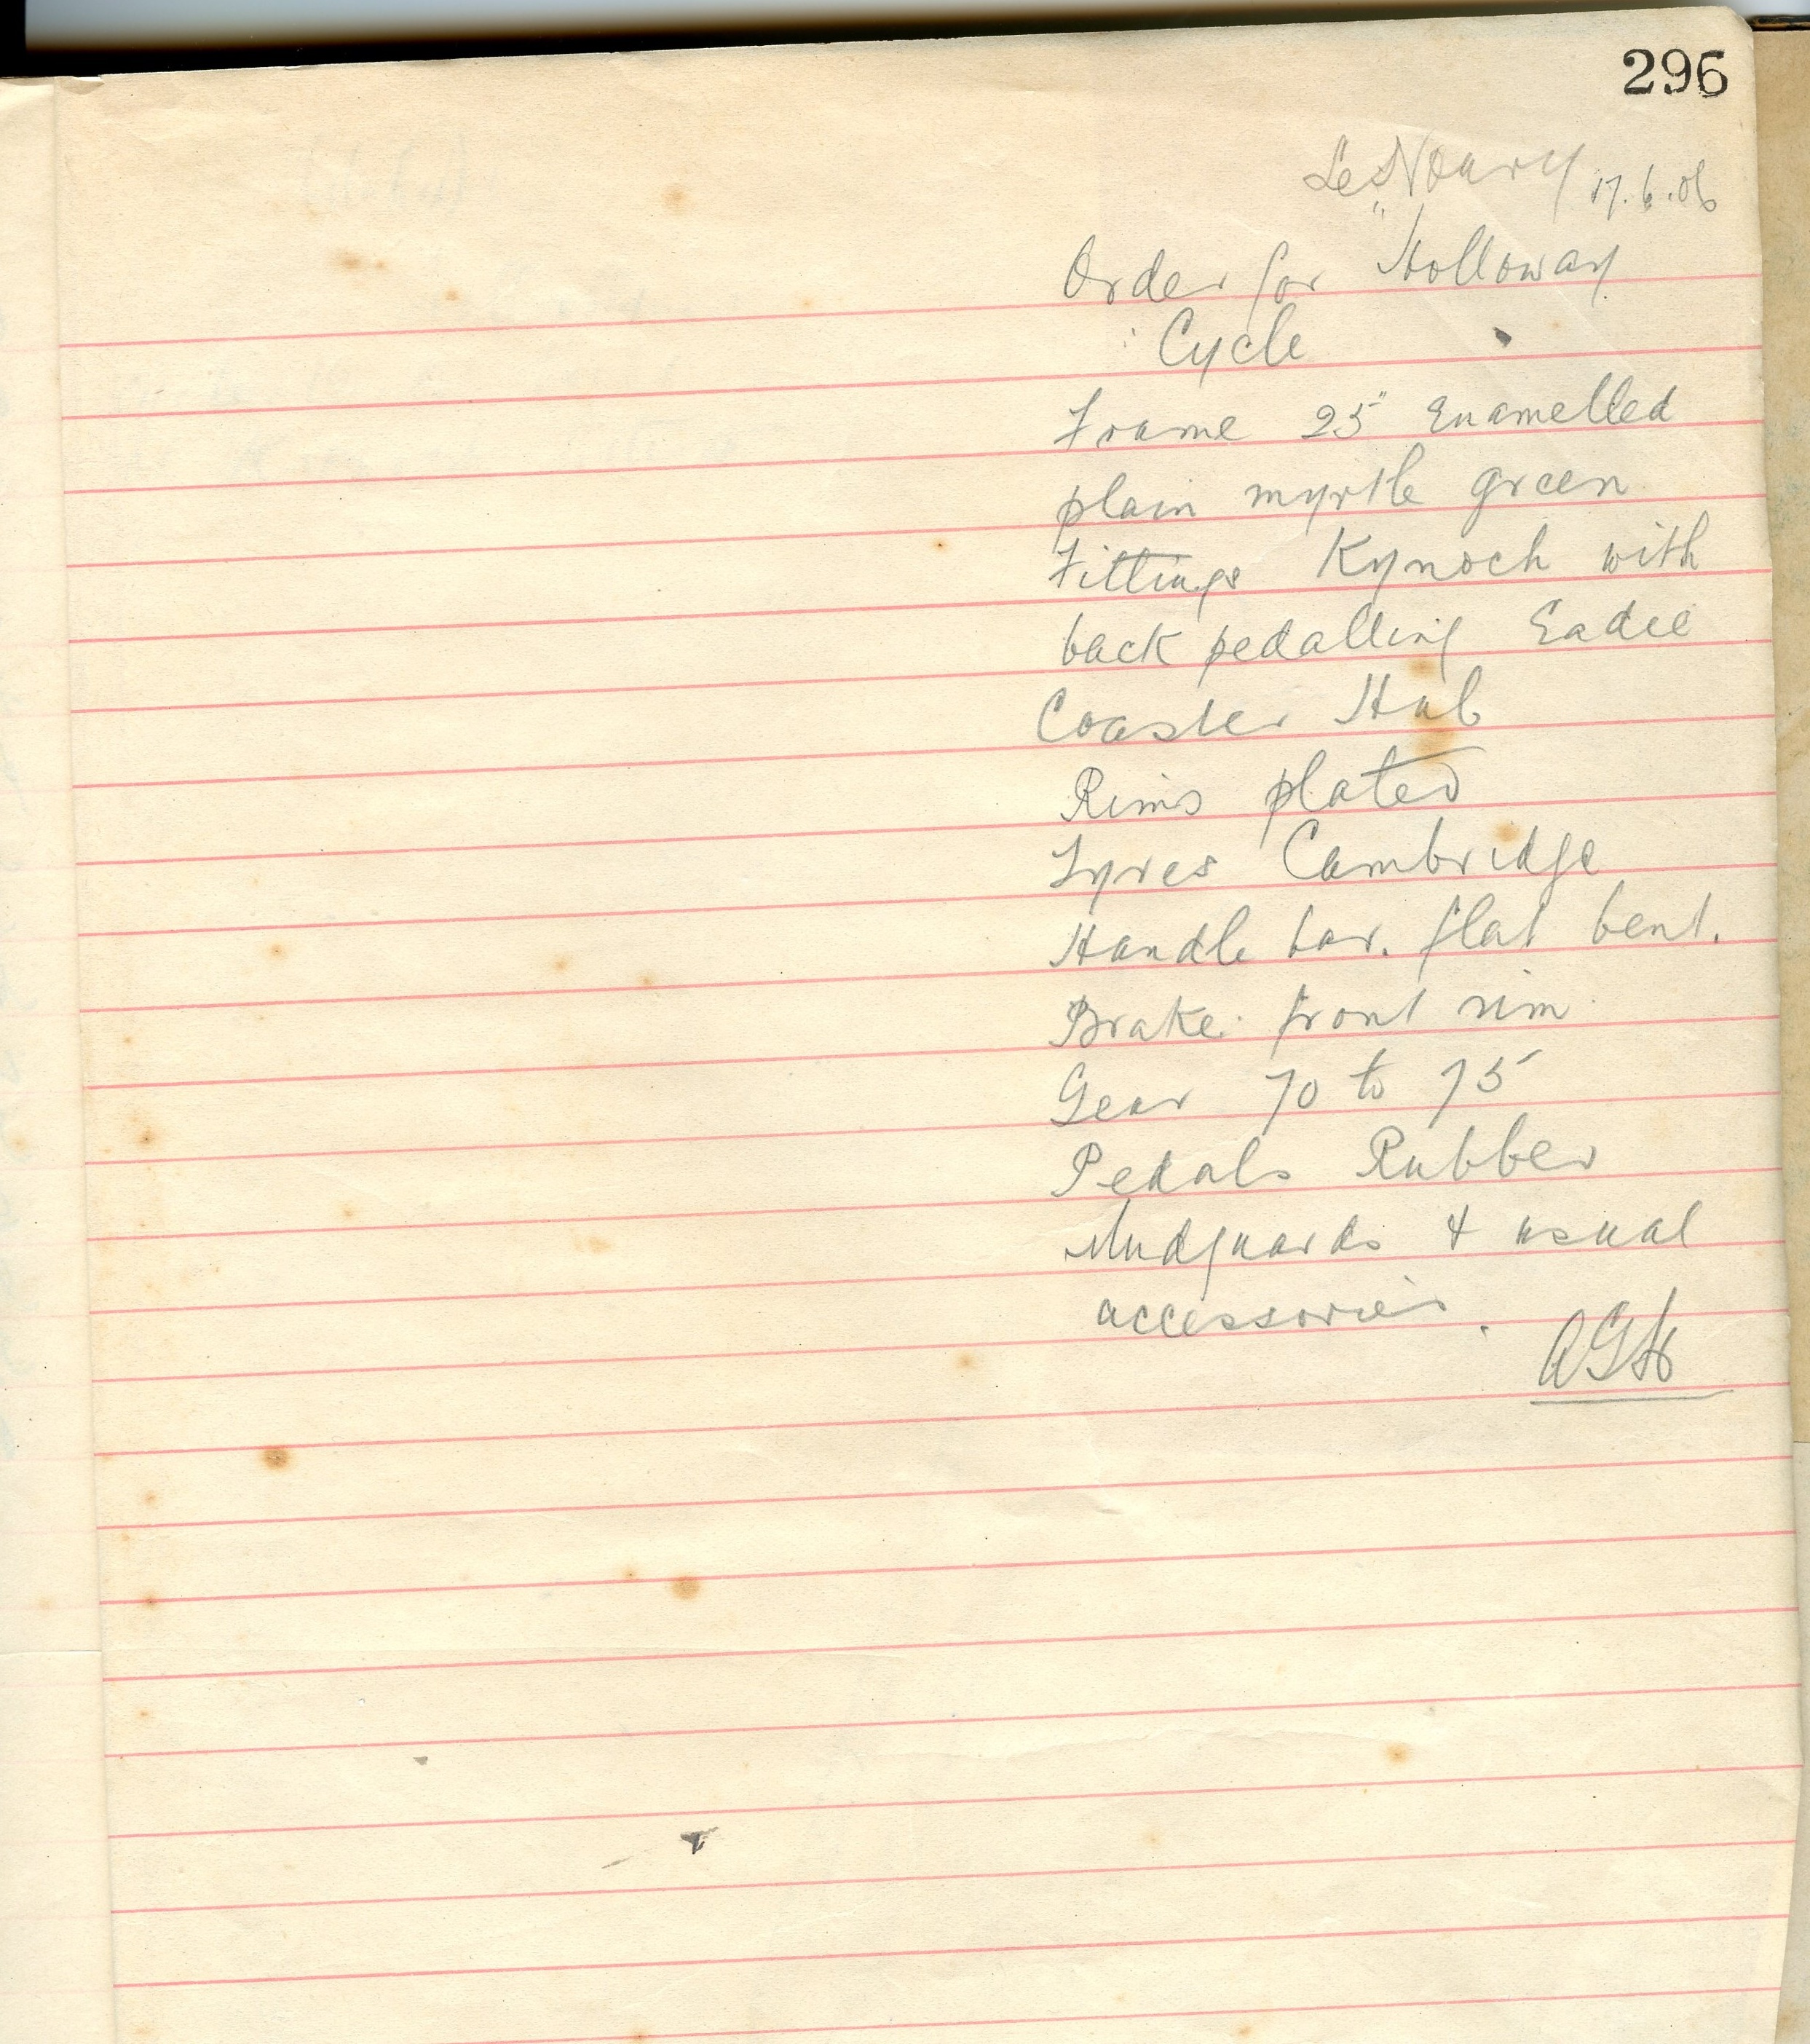 296
Le Noury 17.6.06
Order for "Holloway
Cycle
Frame 25" Enamelled
plain myrtle green
Fittings Kynoch with
back pedalling Eadie
Coaster Hub
Rims plated
Tyres Cambridge
Handle bar. flat bent.
Brake. front rim
Gear 70 to 75
Pedals Rubber
Mudguards & usual
accessories.